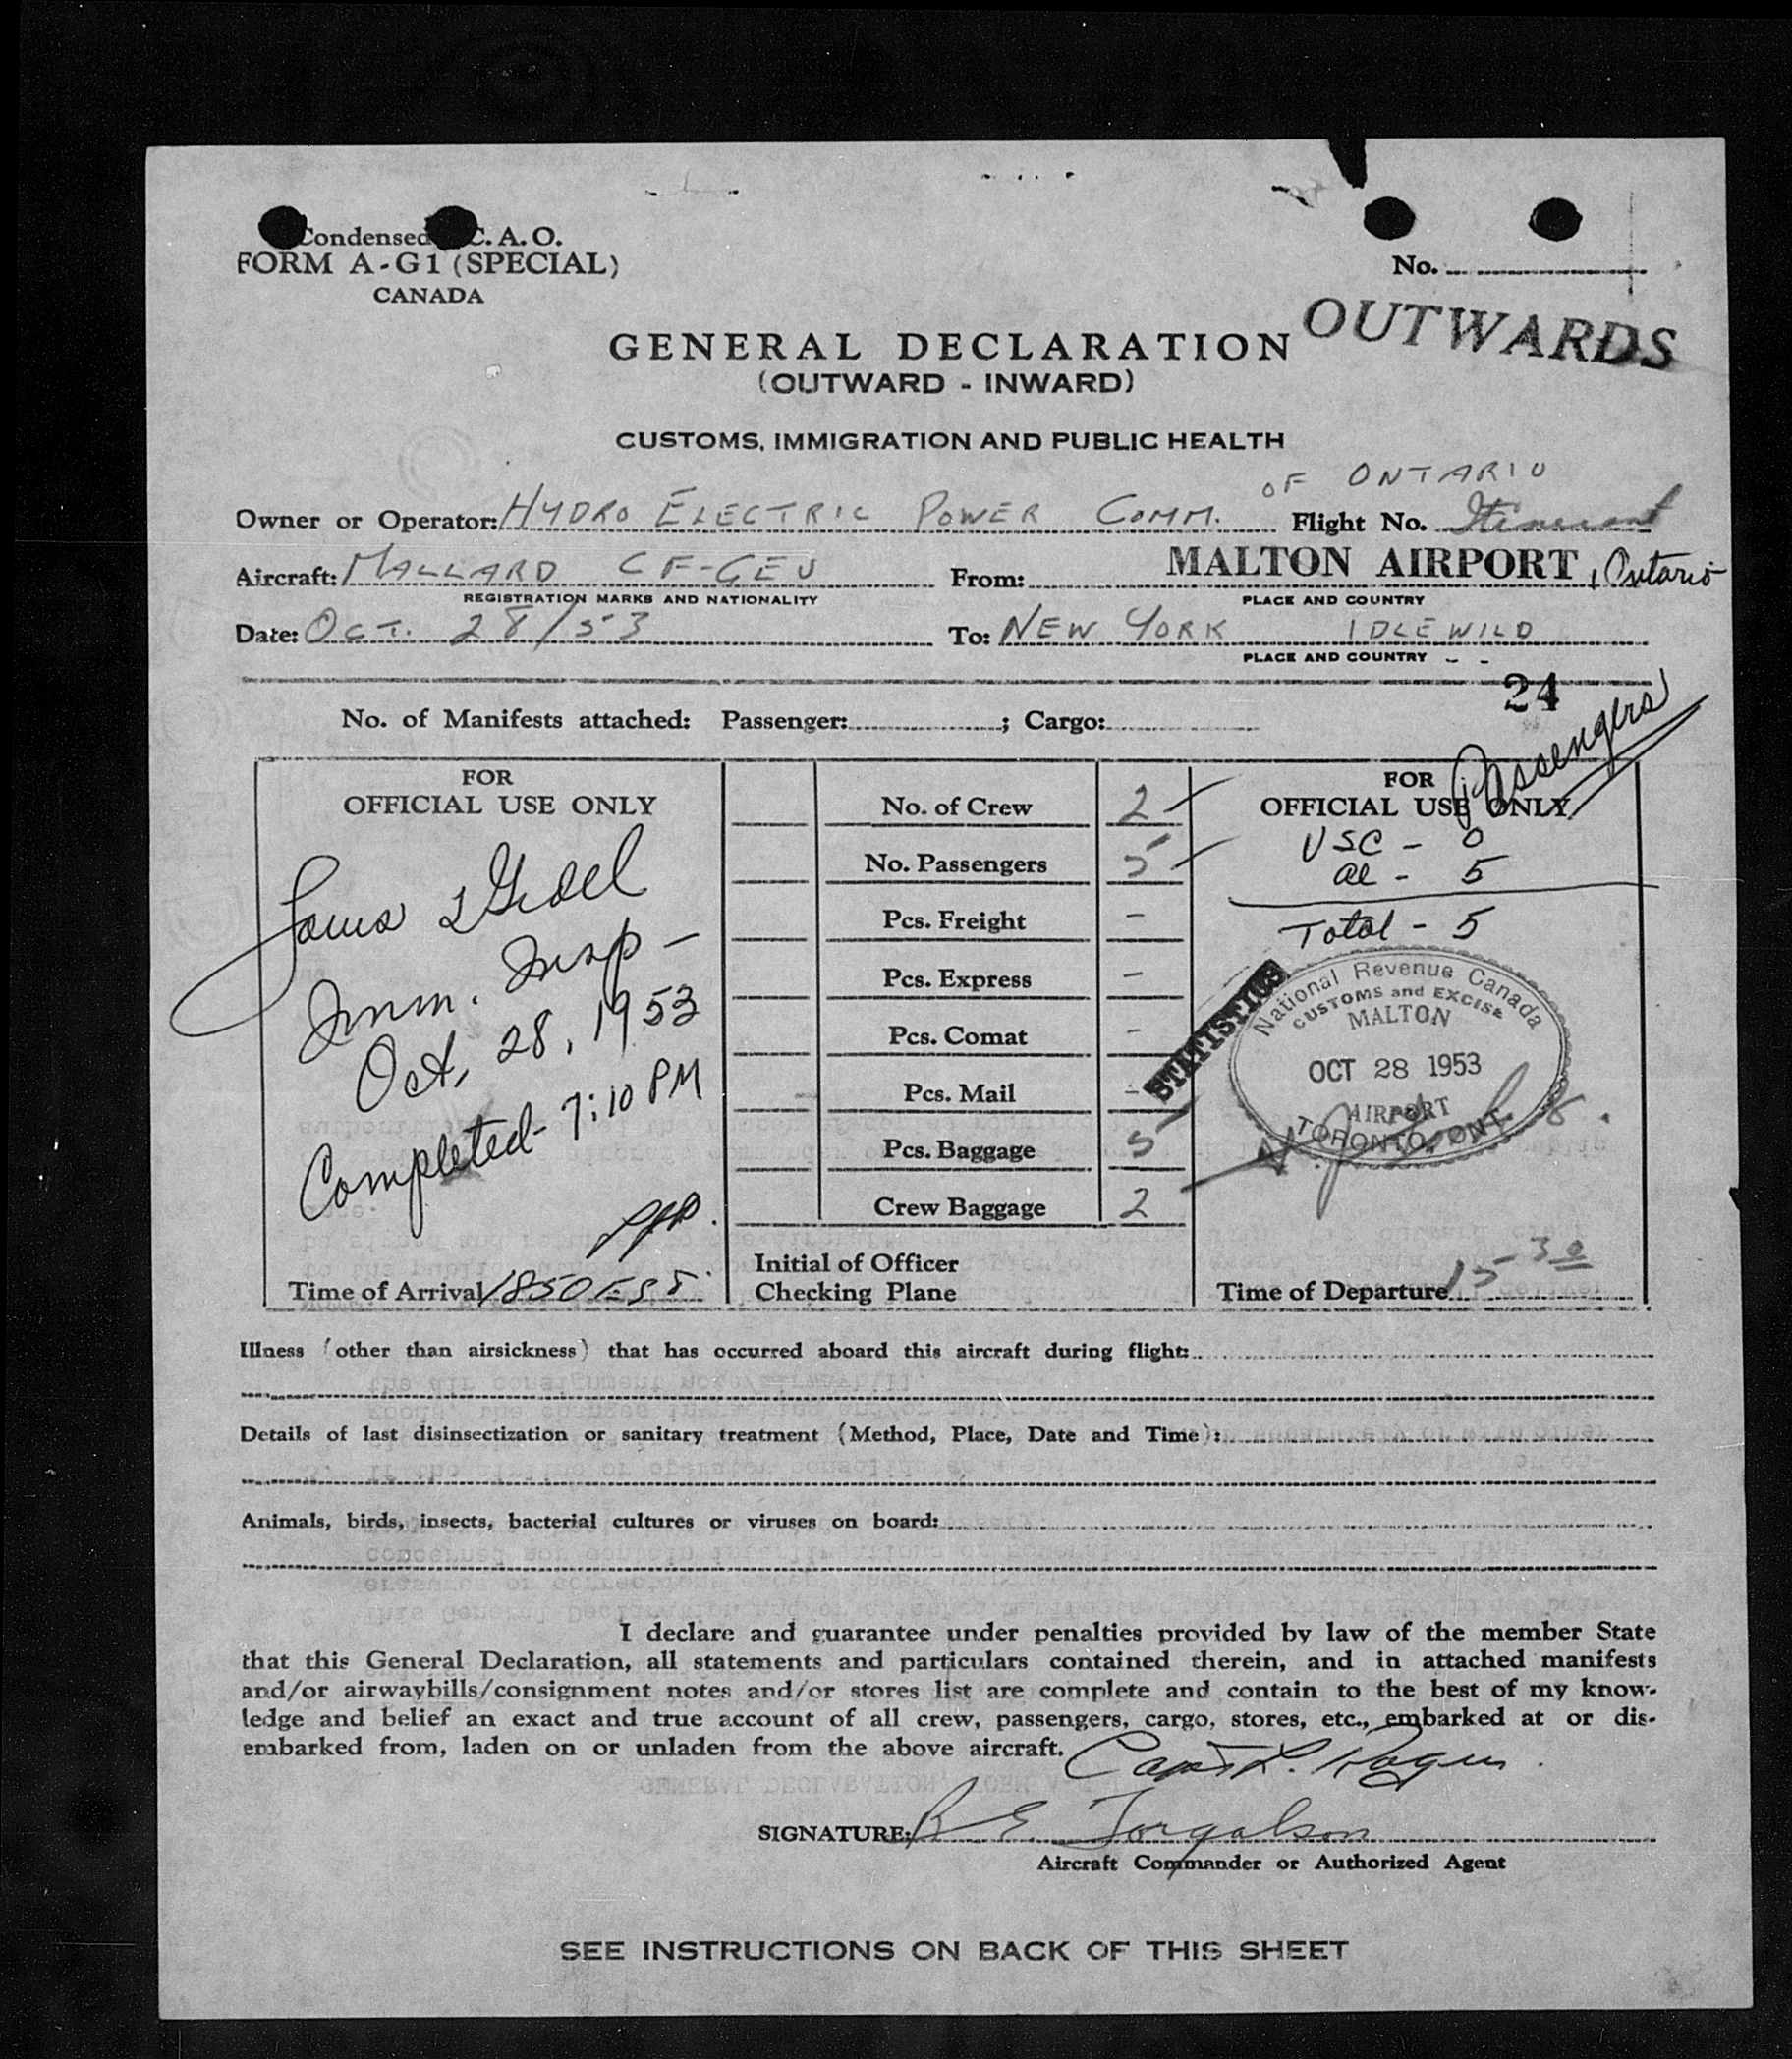 Condensed C. A. O.
FORM A-G1 (SPECIAL)
CANADA
No.
OUTWARDS
GENERAL DECLARATION
(OUTWARD - INWARD)
CUSTOMS, IMMIGRATION AND PUBLIC HEALTH
OF ONTARIO
Owner or Operator: HYDRO ELECTRIC POWER COMM. Flight No. Itinerant
Aircraft: MALLARD CF-GEV From: MALTON AIRPORT, Ontario
REGISTRATION MARKS AND NATIONALITY PLACE AND COUNTRY
Date: OCT. 28/53 To: NEW YORK IDLEWILD
PLACE AND COUNTRY
24
No. of Manifests attached: Passenger: ; Cargo:
Passengers
FOR
OFFICIAL USE ONLY
Imm. Insp -
Oct, 28, 1953
Completed - 7:10 PM
Time of Arrival 1850 EST.
No. of Crew 2
No. Passengers 5
Pcs. Freight -
Pcs. Express -
Pcs. Comat -
Pcs. Mail -
Pcs. Baggage 5
Crew Baggage 2
Initial of Officer
Checking Plane
FOR
OFFICIAL USE ONLY
USC - 0
al - 5
Total - 5
STATISTICS
National Revenue Canada
CUSTOMS and EXCISE
MALTON
OCT 28 1953
AIRPORT
TORONTO, ONT.
Time of Departure 15-30
Illness (other than airsickness) that has occurred aboard this aircraft during flight:
Details of last disinsectization or sanitary treatment (Method, Place, Date and Time):
Animals, birds, insects, bacterial cultures or viruses on board:
I declare and guarantee under penalties provided by law of the member State
that this General Declaration, all statements and particulars contained therein, and in attached manifests
and/or airwaybills/consignment notes and/or stores list are complete and contain to the best of my know-
ledge and belief an exact and true account of all crew, passengers, cargo, stores, etc., embarked at or dis-
embarked from, laden on or unladen from the above aircraft.
Capt L. Rogers
SIGNATURE: R E Torgalson
Aircraft Commander or Authorized Agent
SEE INSTRUCTIONS ON BACK OF THIS SHEET